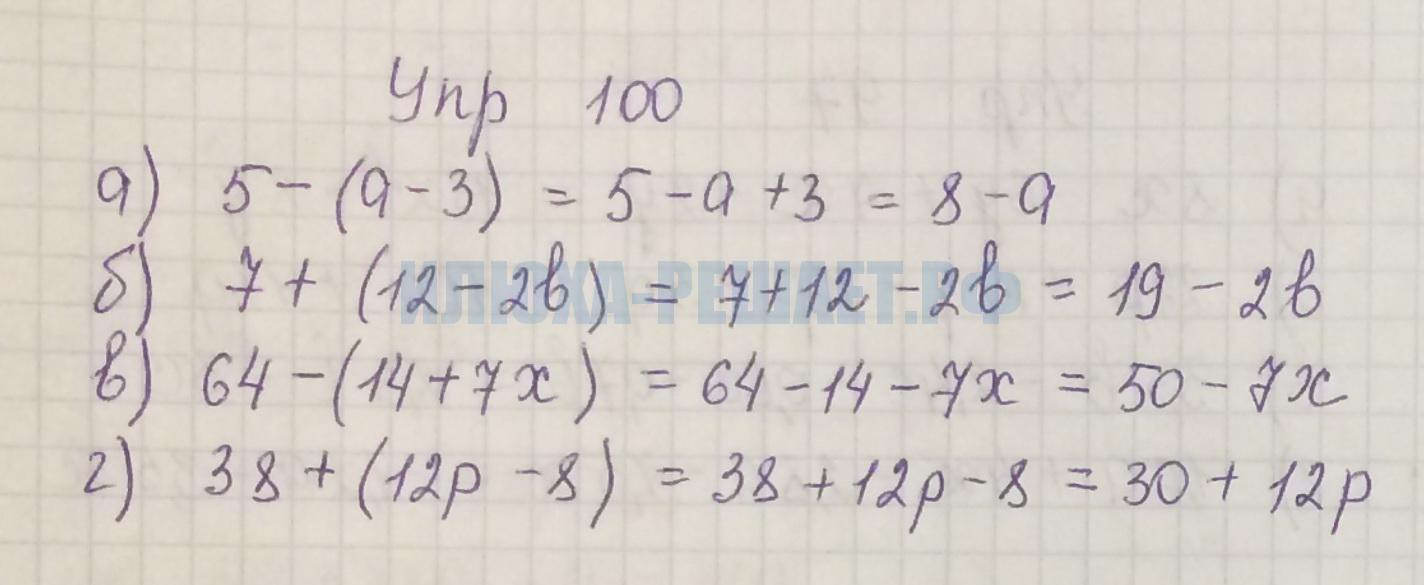 Упр 100
а) 5 - (a - 3) = 5 - a + 3 = 8 - a
б) 7 + (12 - 2b) = 7 + 12 - 2b = 19 - 2b
ИЛЮХА-РЕШАЕТ.РФ
в) 64 - (14 + 7x) = 64 - 14 - 7x = 50 - 7x
г) 38 + (12p - 8) = 38 + 12p - 8 = 30 + 12p